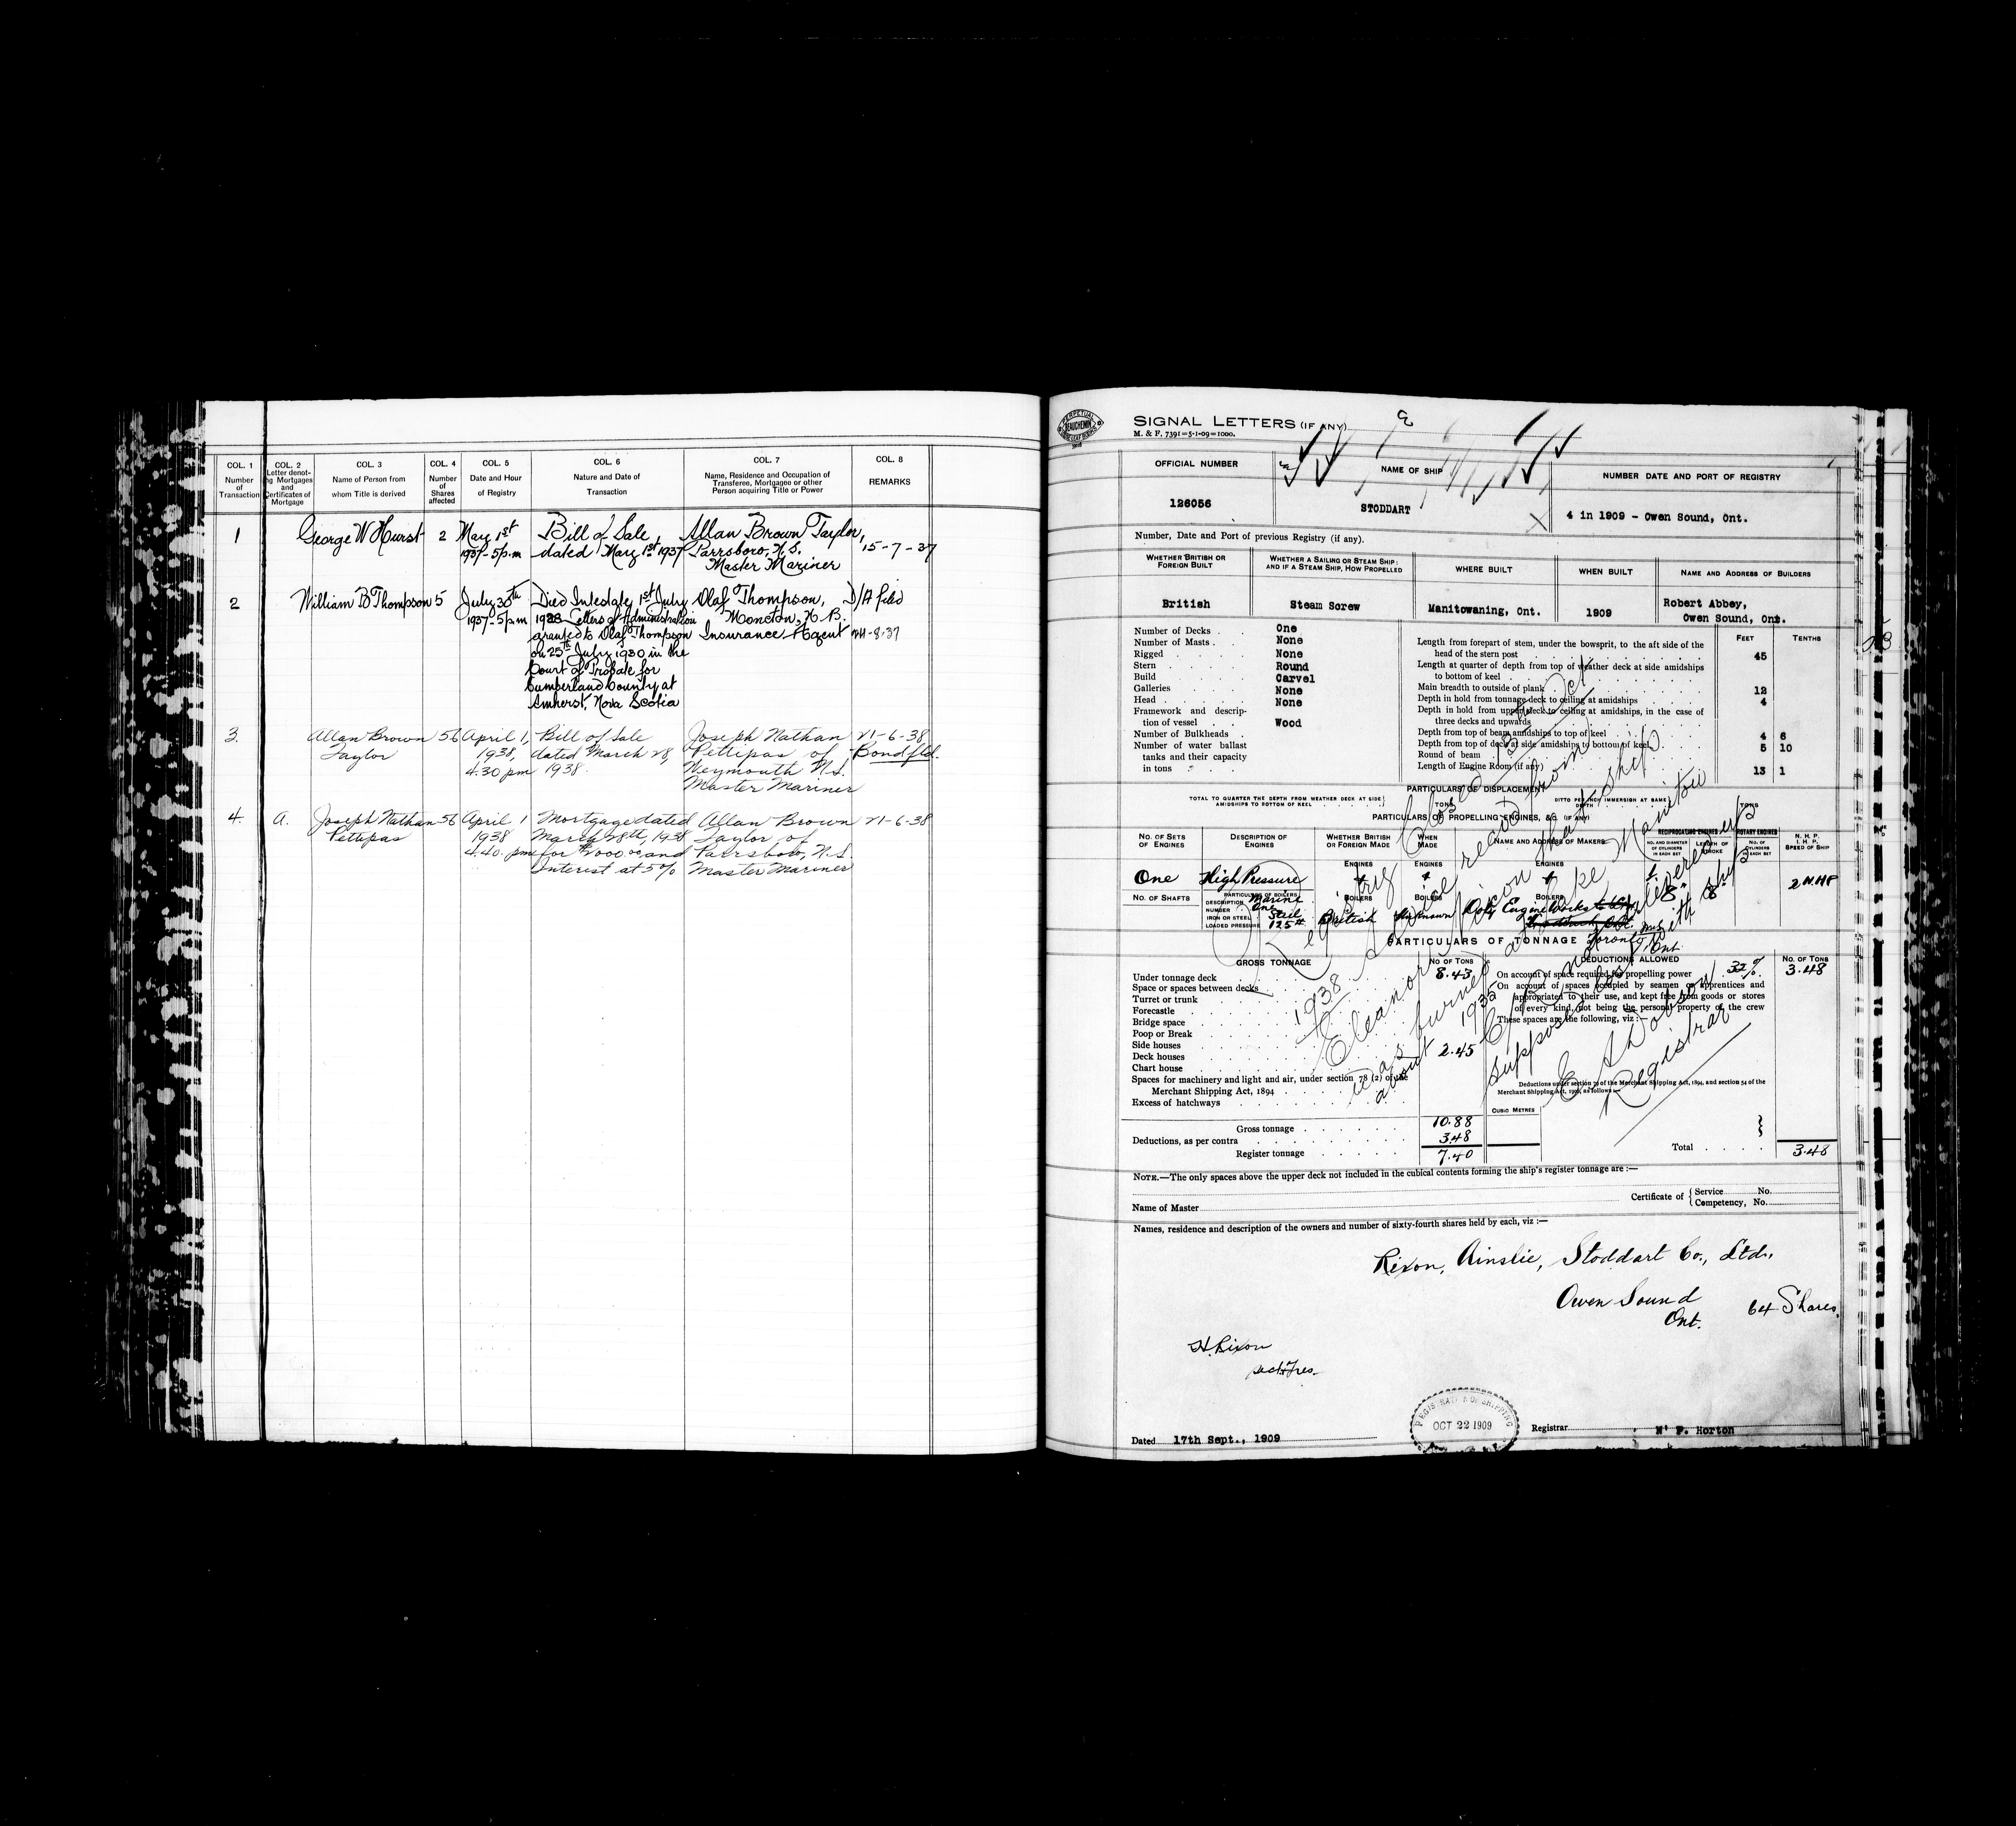 COL. 1
Number
of
Transaction
COL. 2
Letter denot-
ing Mortgages
and
Certificates of
Mortgage
COL. 3
Name of Person from
whom Title is derived
COL. 4
Number
of
Shares
affected
COL. 5
Date and Hour
of Registry
COL. 6
Nature and Date of
Transaction
COL. 7
Name, Residence and Occupation of
Transferee, Mortgagee or other
Person acquiring Title or Power
COL. 8
REMARKS
1
George W Hurst
2
May 1st
1937-5 p.m
Bill of Sale
dated May 1st 1937
Allan Brown Taylor,
Parrsboro, N.S.
Master Mariner
15-7-37
2
William B Thompson
5
July 30th
1937-5 pm
Died Intestate 1st July
1928 Letters of Administration
granted to Olaf Thompson
on 25th July 1930 in the
Court of Probate for
Cumberland County at
Amherst, Nova Scotia
Olaf Thompson,
Moncton, N.B.
Insurance Agent
D/A filed
24-8-37
3.
Allan Brown
Taylor
56
April 1,
1938,
4.30 pm
Bill of Sale
dated March 28,
1938.
Joseph Nathan
Pettipas of
Weymouth N.S.
Master Mariner
21-6-38
Bond fld.
4.
A.
Joseph Nathan
Pettipas
56
April 1
1938
4.40. pm
Mortgage dated
March 28th, 1938
for $2000.00 and
Interest at 5%
Allan Brown
Taylor of
Parrsboro, N.S.
Master Mariner
21-6-38
PERPETUAL
BEAUCHEMIN
SIGNAL LETTERS (IF ANY)
M. & F. 7391=5-1-09=1000.
OFFICIAL NUMBER
NAME OF SHIP
NUMBER DATE AND PORT OF REGISTRY
126056
STODDART
4 in 1909 - Owen Sound, Ont.
Number, Date and Port of previous Registry (if any).
WHETHER BRITISH OR
FOREIGN BUILT
WHETHER A SAILING OR STEAM SHIP:
AND IF A STEAM SHIP, HOW PROPELLED
WHERE BUILT
WHEN BUILT
NAME AND ADDRESS OF BUILDERS
British
Steam Screw
Manitowaning, Ont.
1909
Robert Abbey,
Owen Sound, Ont.
FEET
TENTHS
Number of Decks One
Number of Masts None
Rigged None
Stern Round
Build Carvel
Galleries None
Head None
Framework and descrip-
tion of vessel Wood
Number of Bulkheads
Number of water ballast
tanks and their capacity
in tons
Length from forepart of stem, under the bowsprit, to the aft side of the
head of the stern post 45
Length at quarter of depth from top of weather deck at side amidships
to bottom of keel
Main breadth to outside of plank 12
Depth in hold from tonnage deck to ceiling at amidships 4
Depth in hold from upper deck to ceiling at amidships, in the case of
three decks and upwards
Depth from top of beam amidships to top of keel 4 6
Depth from top of deck at side amidships to bottom of keel 5 10
Round of beam
Length of Engine Room (if any) 13 1
PARTICULARS OF DISPLACEMENT
TOTAL TO QUARTER THE DEPTH FROM WEATHER DECK AT SIDE
AMIDSHIPS TO BOTTOM OF KEEL
TONS
DITTO PER INCH IMMERSION AT SAME
DEPTH
TONS
PARTICULARS OF PROPELLING ENGINES, &c. (IF ANY)
NO. OF SETS
OF ENGINES
DESCRIPTION OF
ENGINES
WHETHER BRITISH
OR FOREIGN MADE
WHEN
MADE
NAME AND ADDRESS OF MAKERS
RECIPROCATING ENGINES
ROTARY ENGINES
NO. AND DIAMETER
OF CYLINDERS
IN EACH SET
LENGTH OF
STROKE
NO. OF
CYLINDERS
IN EACH SET
N. H. P.
I. H. P.
SPEED OF SHIP
ENGINES
ENGINES
ENGINES
One
High Pressure
2 N.H.P
NO. OF SHAFTS
PARTICULARS OF BOILERS
DESCRIPTION Marine
NUMBER One
IRON OR STEEL Steel
LOADED PRESSURE 125 #
BOILERS
BOILERS
BOILERS
British
Unknown
Doty Engine Works
Toronto, Ont
8"
8"
Closed 13th Oct
1938. Advice rec'd from
Eleanor Nixon that ship
was burned at Lake Manitou
about 1935
C/R not delivered up
supposed lost with ship
Registrar
PARTICULARS OF TONNAGE
GROSS TONNAGE
NO OF TONS
DEDUCTIONS ALLOWED
NO. OF TONS
Under tonnage deck 8.43
Space or spaces between decks
Turret or trunk
Forecastle
Bridge space
Poop or Break
Side houses
Deck houses 2.45
Chart house
Spaces for machinery and light and air, under section 78 (2) of the
Merchant Shipping Act, 1894
Excess of hatchways
On account of space required for propelling power 32% 3.48
On account of spaces occupied by seamen or apprentices and
appropriated to their use, and kept free from goods or stores
of every kind, not being the personal property of the crew
These spaces are the following, viz:
Deductions under section 79 of the Merchant Shipping Act, 1894, and section 54 of the
Merchant Shipping Act, 1906, as follows
CUBIC METRES
Gross tonnage 10.88
Deductions, as per contra 3.48
Register tonnage 7.40
Total 3.48
NOTE.—The only spaces above the upper deck not included in the cubical contents forming the ship's register tonnage are :—
Name of Master
Certificate of
Service No.
Competency, No.
Names, residence and description of the owners and number of sixty-fourth shares held by each, viz :—
Rixon, Ainslie, Stoddart Co., Ltd.,
Owen Sound
Ont.
64 Shares.
H. Rixon
sec Tres.
REGISTRAR OF SHIPPING
OCT 22 1909
Dated 17th Sept., 1909
Registrar N' P. Horton